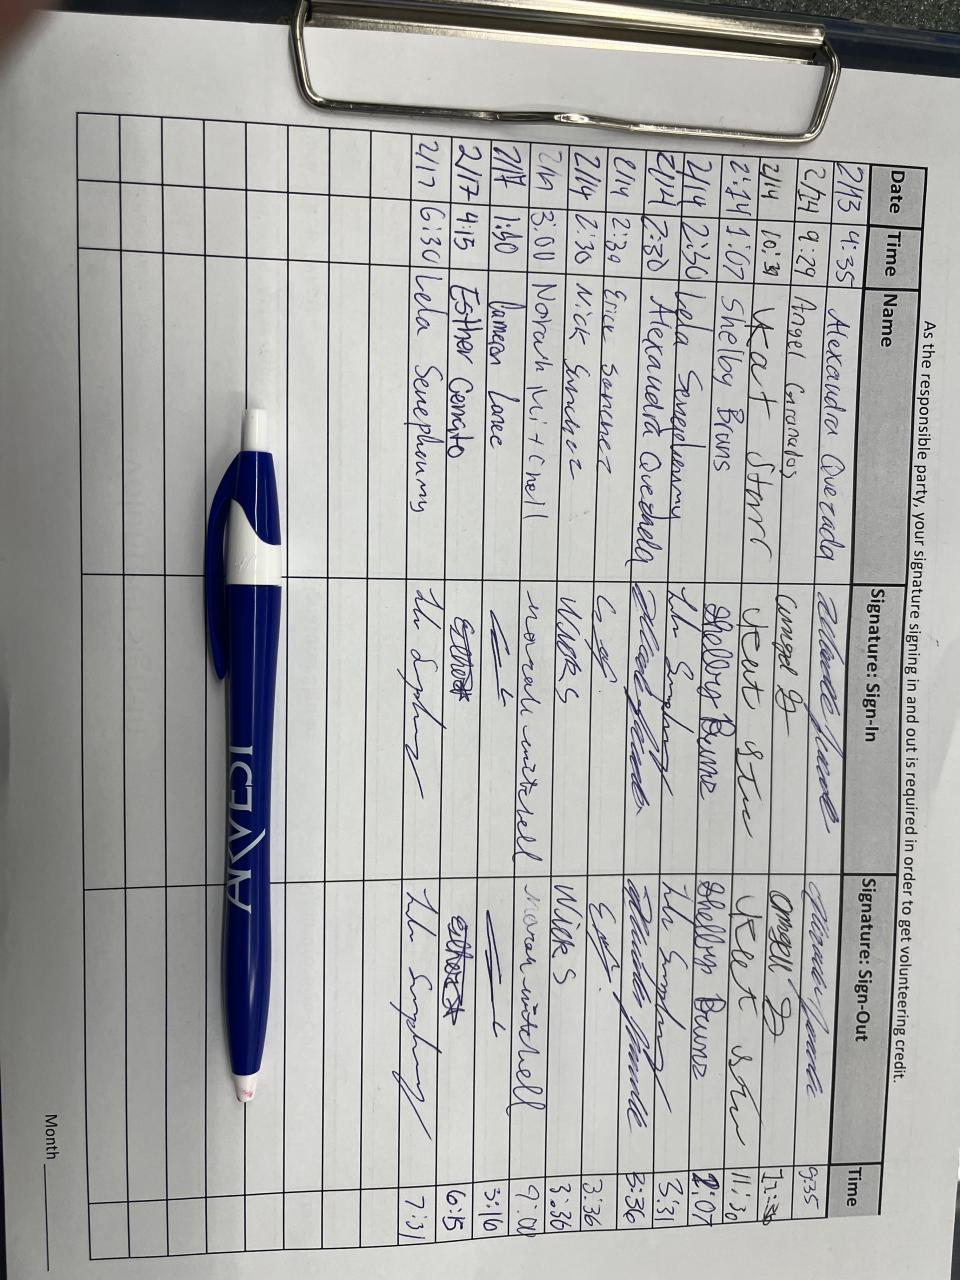 As the responsible party, your signature signing in and out is required in order to get volunteering credit.
Date Time Name Signature: Sign-In Signature: Sign-Out Time
2/13 9:35 Alexandra Quezada 9:35
2/14 9:29 Angel Granados Angel G Angel G 11:30
2/14 10:30 Kat Starr 11:30
2:14 1:07 Shelby Bruns Shelby Bruns Shelby Bruns 2:07
2/14 2:30 Lela 3:31
2/14 2:30 Alexandra Quezada 3:36
2/14 2:30 Erick Sanchez 3:36
2/14 2:30 Nick Sanchez Nick S Nick S 3:36
2/17 3:00 Norah Mitchell Norah Mitchell Norah Mitchell
2/17 1:50 Cameron Lance 3:16
2/17 4:15 Esther Esther Esther 6:15
2/17 6:30 Lela 7:31
Month